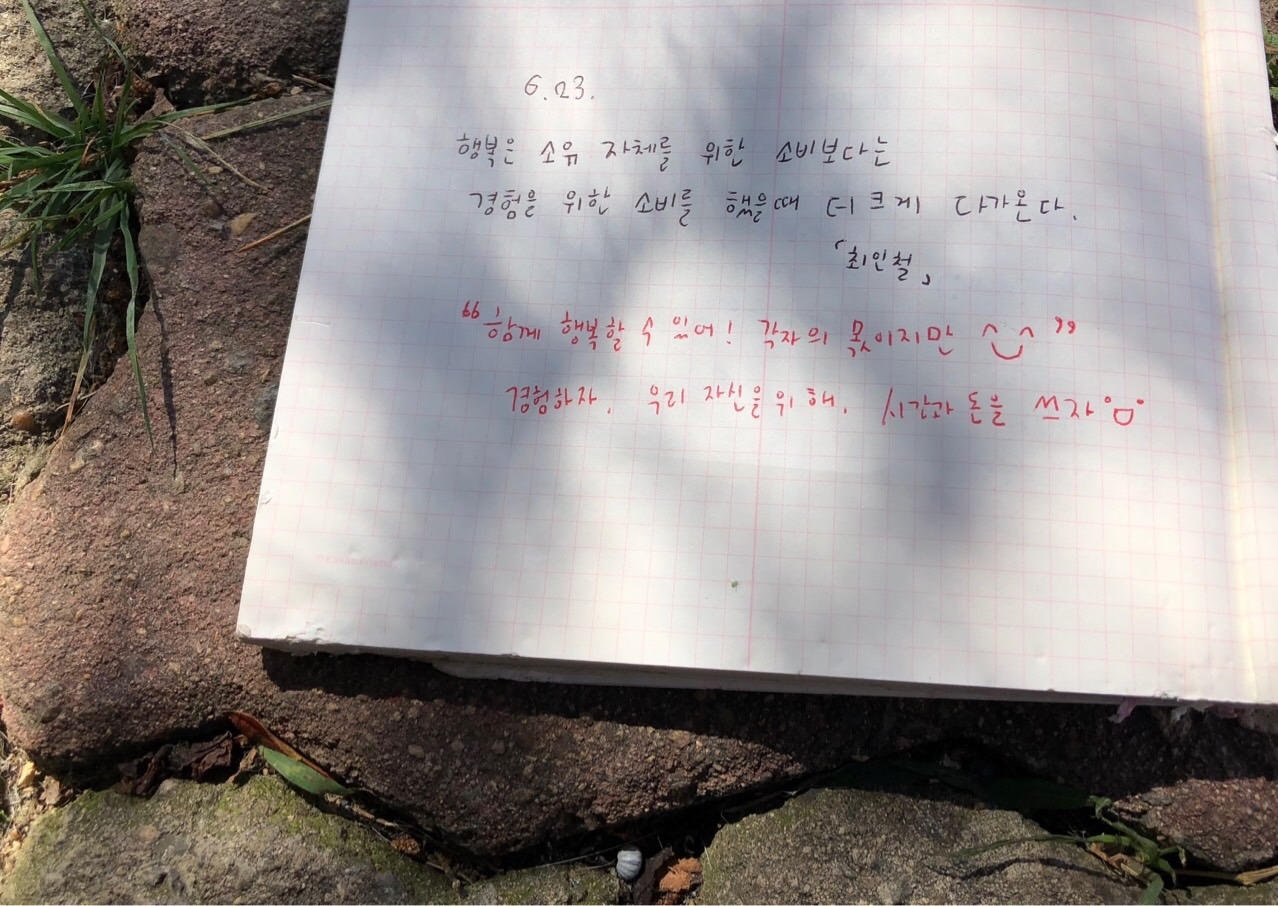 6.23.
행복은 소유 자체를 위한 소비보다는
경험을 위한 소비를 했을때 더 크게 다가온다.
「최인철」
"함께 행복할 수 있어! 각자의 몫이지만 ^‿^"
경험하자. 우리 자신을위해. 시간과 돈을 쓰자